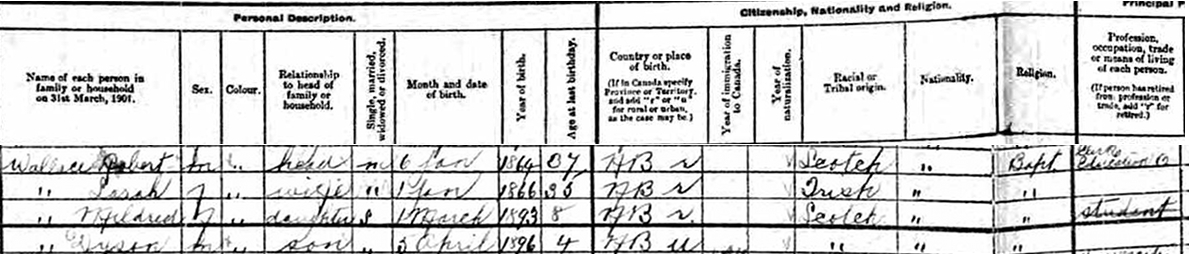 Personal Description.
Citizenship, Nationality and Religion.
Principal P
Name of each person in family or household on 31st March, 1901.
Sex.
Colour.
Relationship to head of family or household.
Single, married, widowed or divorced.
Month and date of birth.
Year of birth.
Age at last birthday.
Country or place of birth. (If in Canada specify Province or Territory, and add "r" or "u" for rural or urban, as the case may be.)
Year of immigration to Canada.
Year of naturalization.
Racial or Tribal origin.
Nationality.
Religion.
Profession, occupation, trade or means of living of each person. (If person has retired from profession or trade, add "r" for retired.)
Wallace Robert m " head m 6 Jan 1864 37 NB r Scotch " Bapt. Education O
" Sarah f " wife " 1 Jan 1866 35 NB r Irish " "
" Mildred f " daughter s 1 March 1893 8 NB r Scotch " " student
" Tyson m " son " 5 April 1896 4 NB u " " "